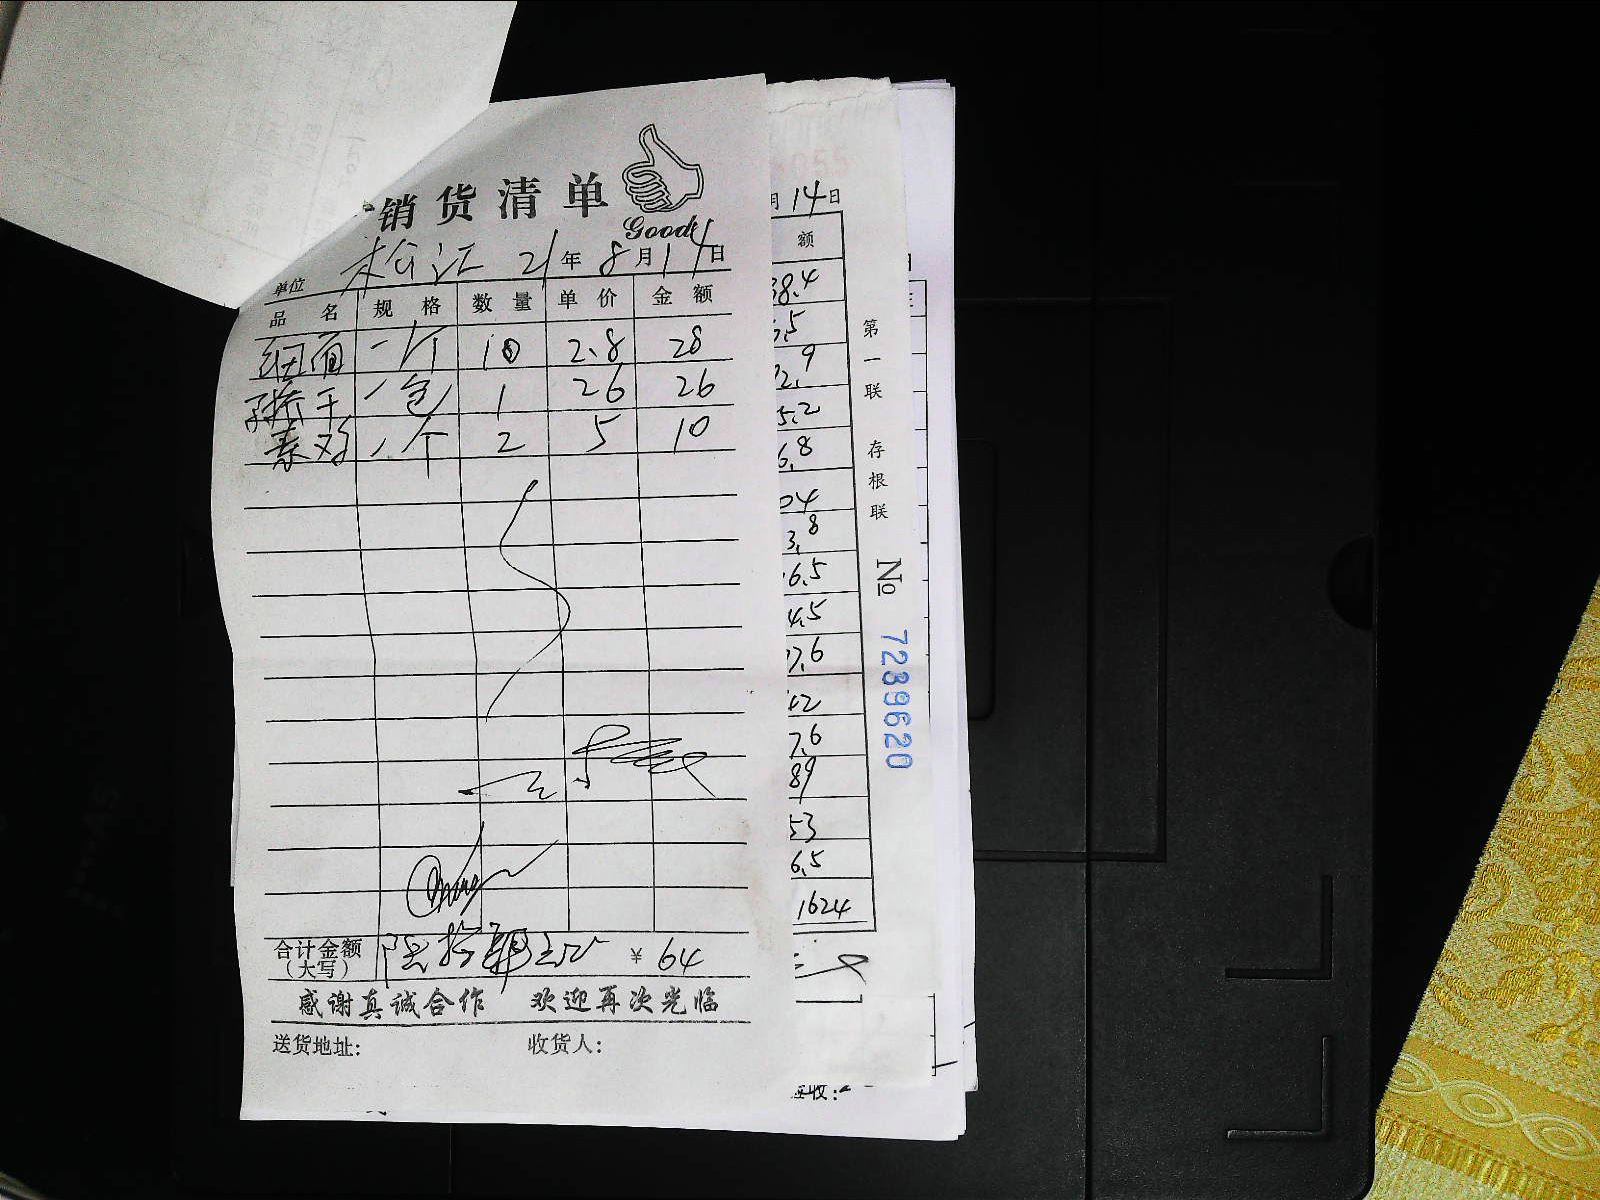 销货清单
Good
单位 松江 21年8月14日
品名 规格 数量 单价 金额
细面 一个 10 2.8 28
干 一包 1 26 26
素鸡 一个 2 5 10
合计金额(大写) 陆拾肆元 ¥ 64
感谢真诚合作 欢迎再次光临
送货地址: 收货人:
月14日
额
38.4
2.9
5.2
6.8
04
3.8
6.5
4.5
7.6
42
7.6
89
53
6.5
1624
第一联 存根联
No 7239620
收: